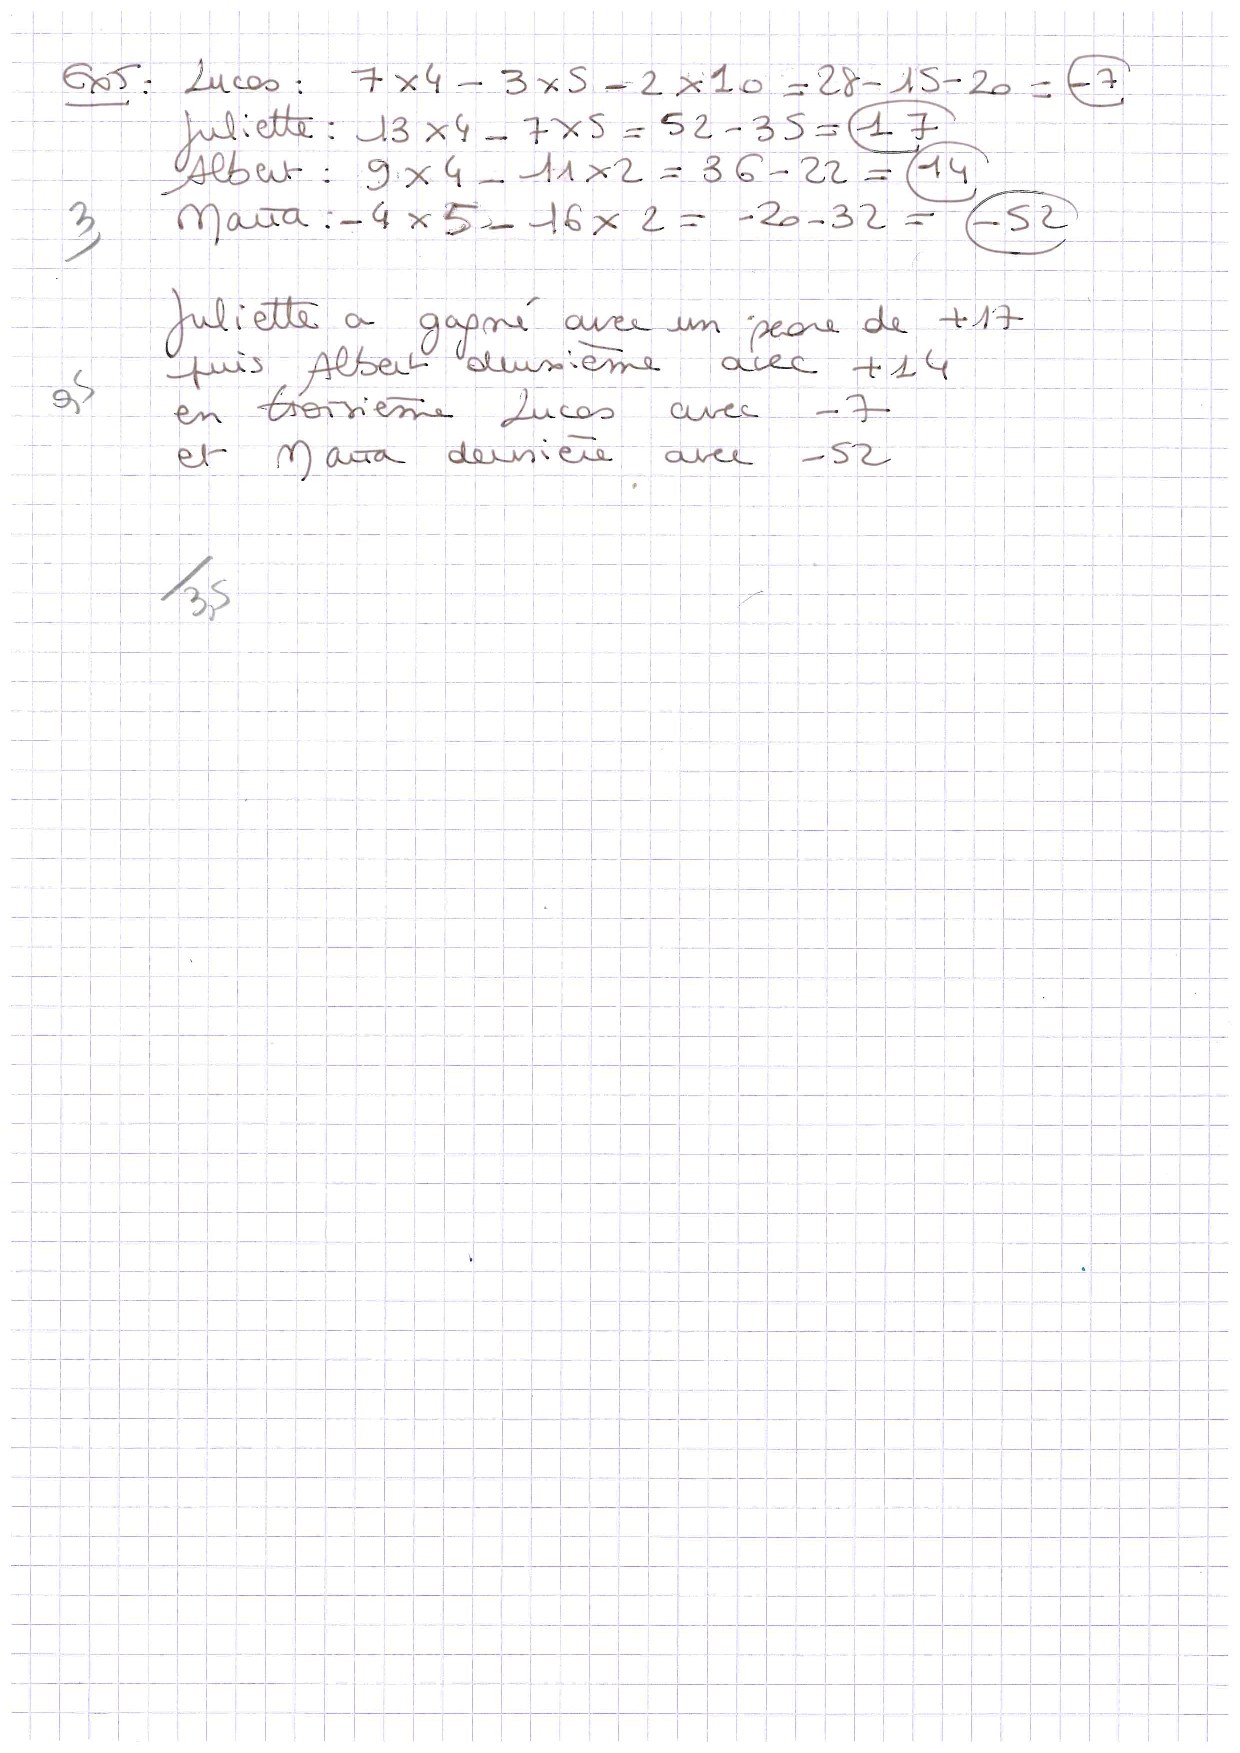 Ex5 : Lucas : 7 x 4 - 3 x 5 - 2 x 10 = 28 - 15 - 20 = -7
Juliette : 13 x 4 - 7 x 5 = 52 - 35 = 17
Albert : 9 x 4 - 11 x 2 = 36 - 22 = 14
3 Maria : - 4 x 5 - 16 x 2 = -20 - 32 = -52
Juliette a gagné avec un score de +17
puis Albert deuxième avec +14
0,5 en troisième Lucas avec -7
et Maria dernière avec -52
/3,5